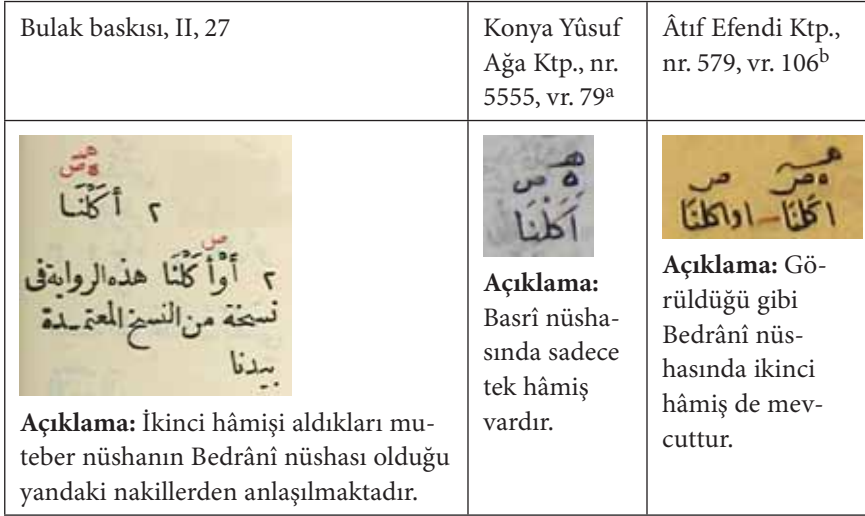 Bulak baskısı, II, 27
Konya Yûsuf
Ağa Ktp., nr.
5555, vr. 79a
Âtıf Efendi Ktp.,
nr. 579, vr. 106b
ه ص
٢ أَكَلْنَا
ص
٢ أَوْأَكَلْنَا هذه الرواية فى
نسخة من النسخ المعتمدة
بيدنا
Açıklama: İkinci hâmişi aldıkları mu-
teber nüshanın Bedrânî nüshası olduğu
yandaki nakillerden anlaşılmaktadır.
ه ص
اَكَلْنَا
Açıklama:
Basrî nüsha-
sında sadece
tek hâmiş
vardır.
ص
اكلنَا اواكلنَا
Açıklama: Gö-
rüldüğü gibi
Bedrânî nüs-
hasında ikinci
hâmiş de mev-
cuttur.